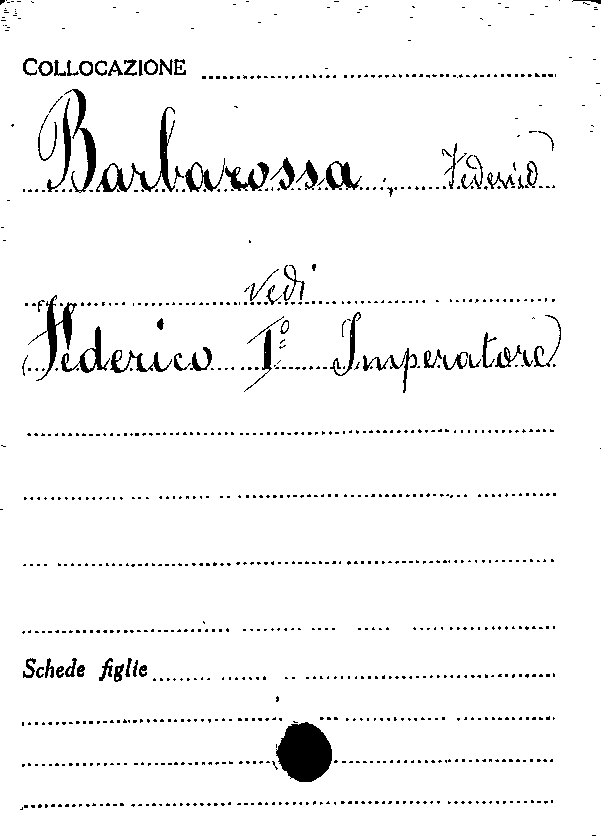 COLLOCAZIONE
Barbarossa, Federico
vedi
Federico Iº Imperatore
Schede figlie